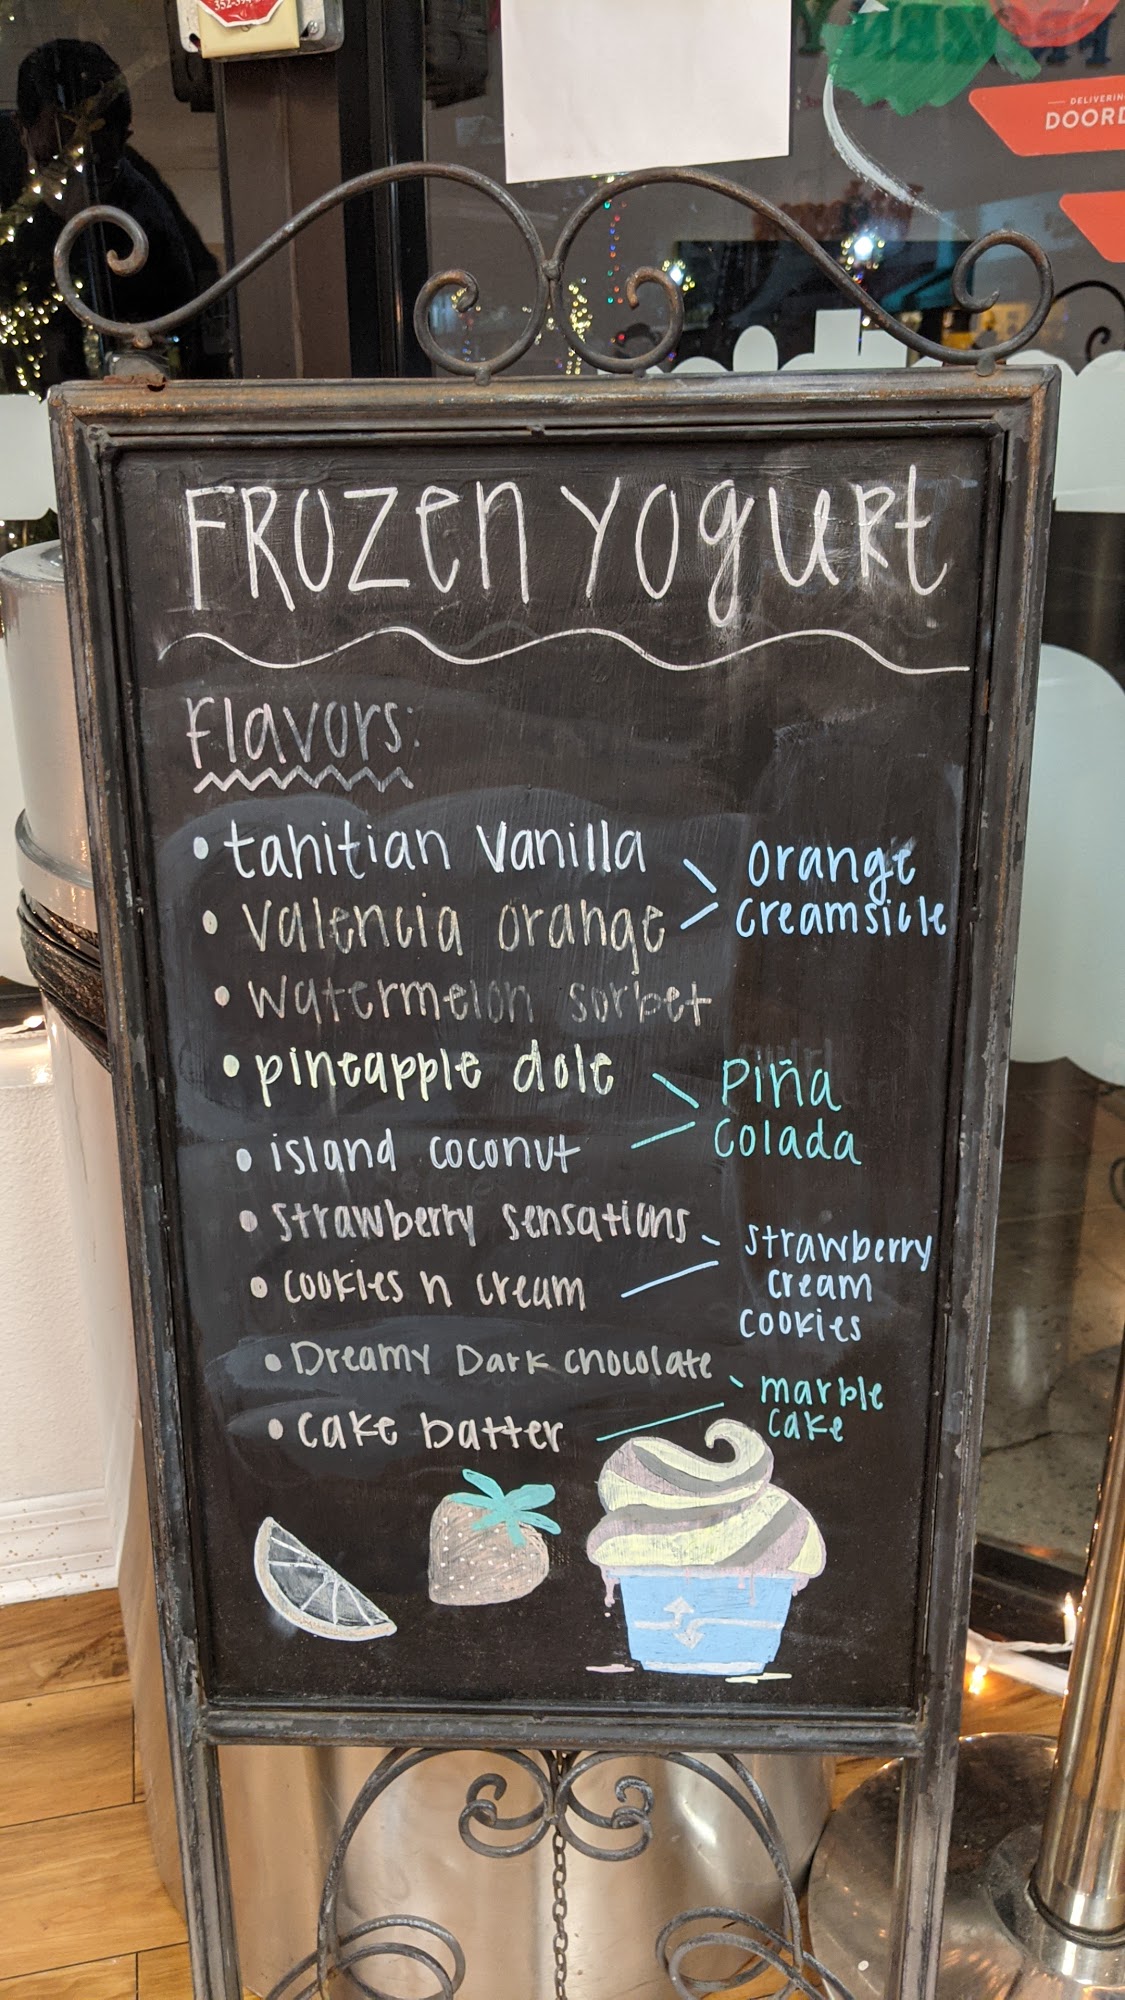 352-394
FROZEN
DELIVERING
DOORD
FROZEN YOGURT
Flavors:
• tahitian vanilla
• valencia orange
orange
creamsicle
• watermelon sorbet
• pineapple dole
• island coconut
Piña
Colada
• strawberry sensations
• cookies n cream
strawberry
cream
cookies
• Dreamy Dark chocolate
• cake batter
marble
cake